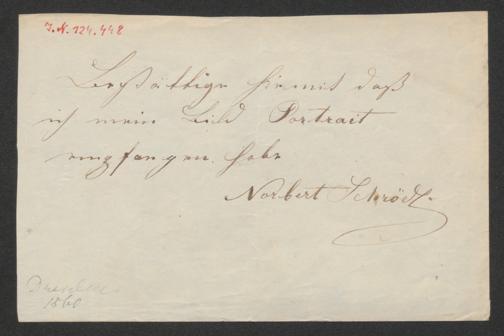 J.N. 124.448
Bestättige hiemit daß
ich mein Bild Portrait
empfangen habe
Norbert Schrödl
Dresden
1860